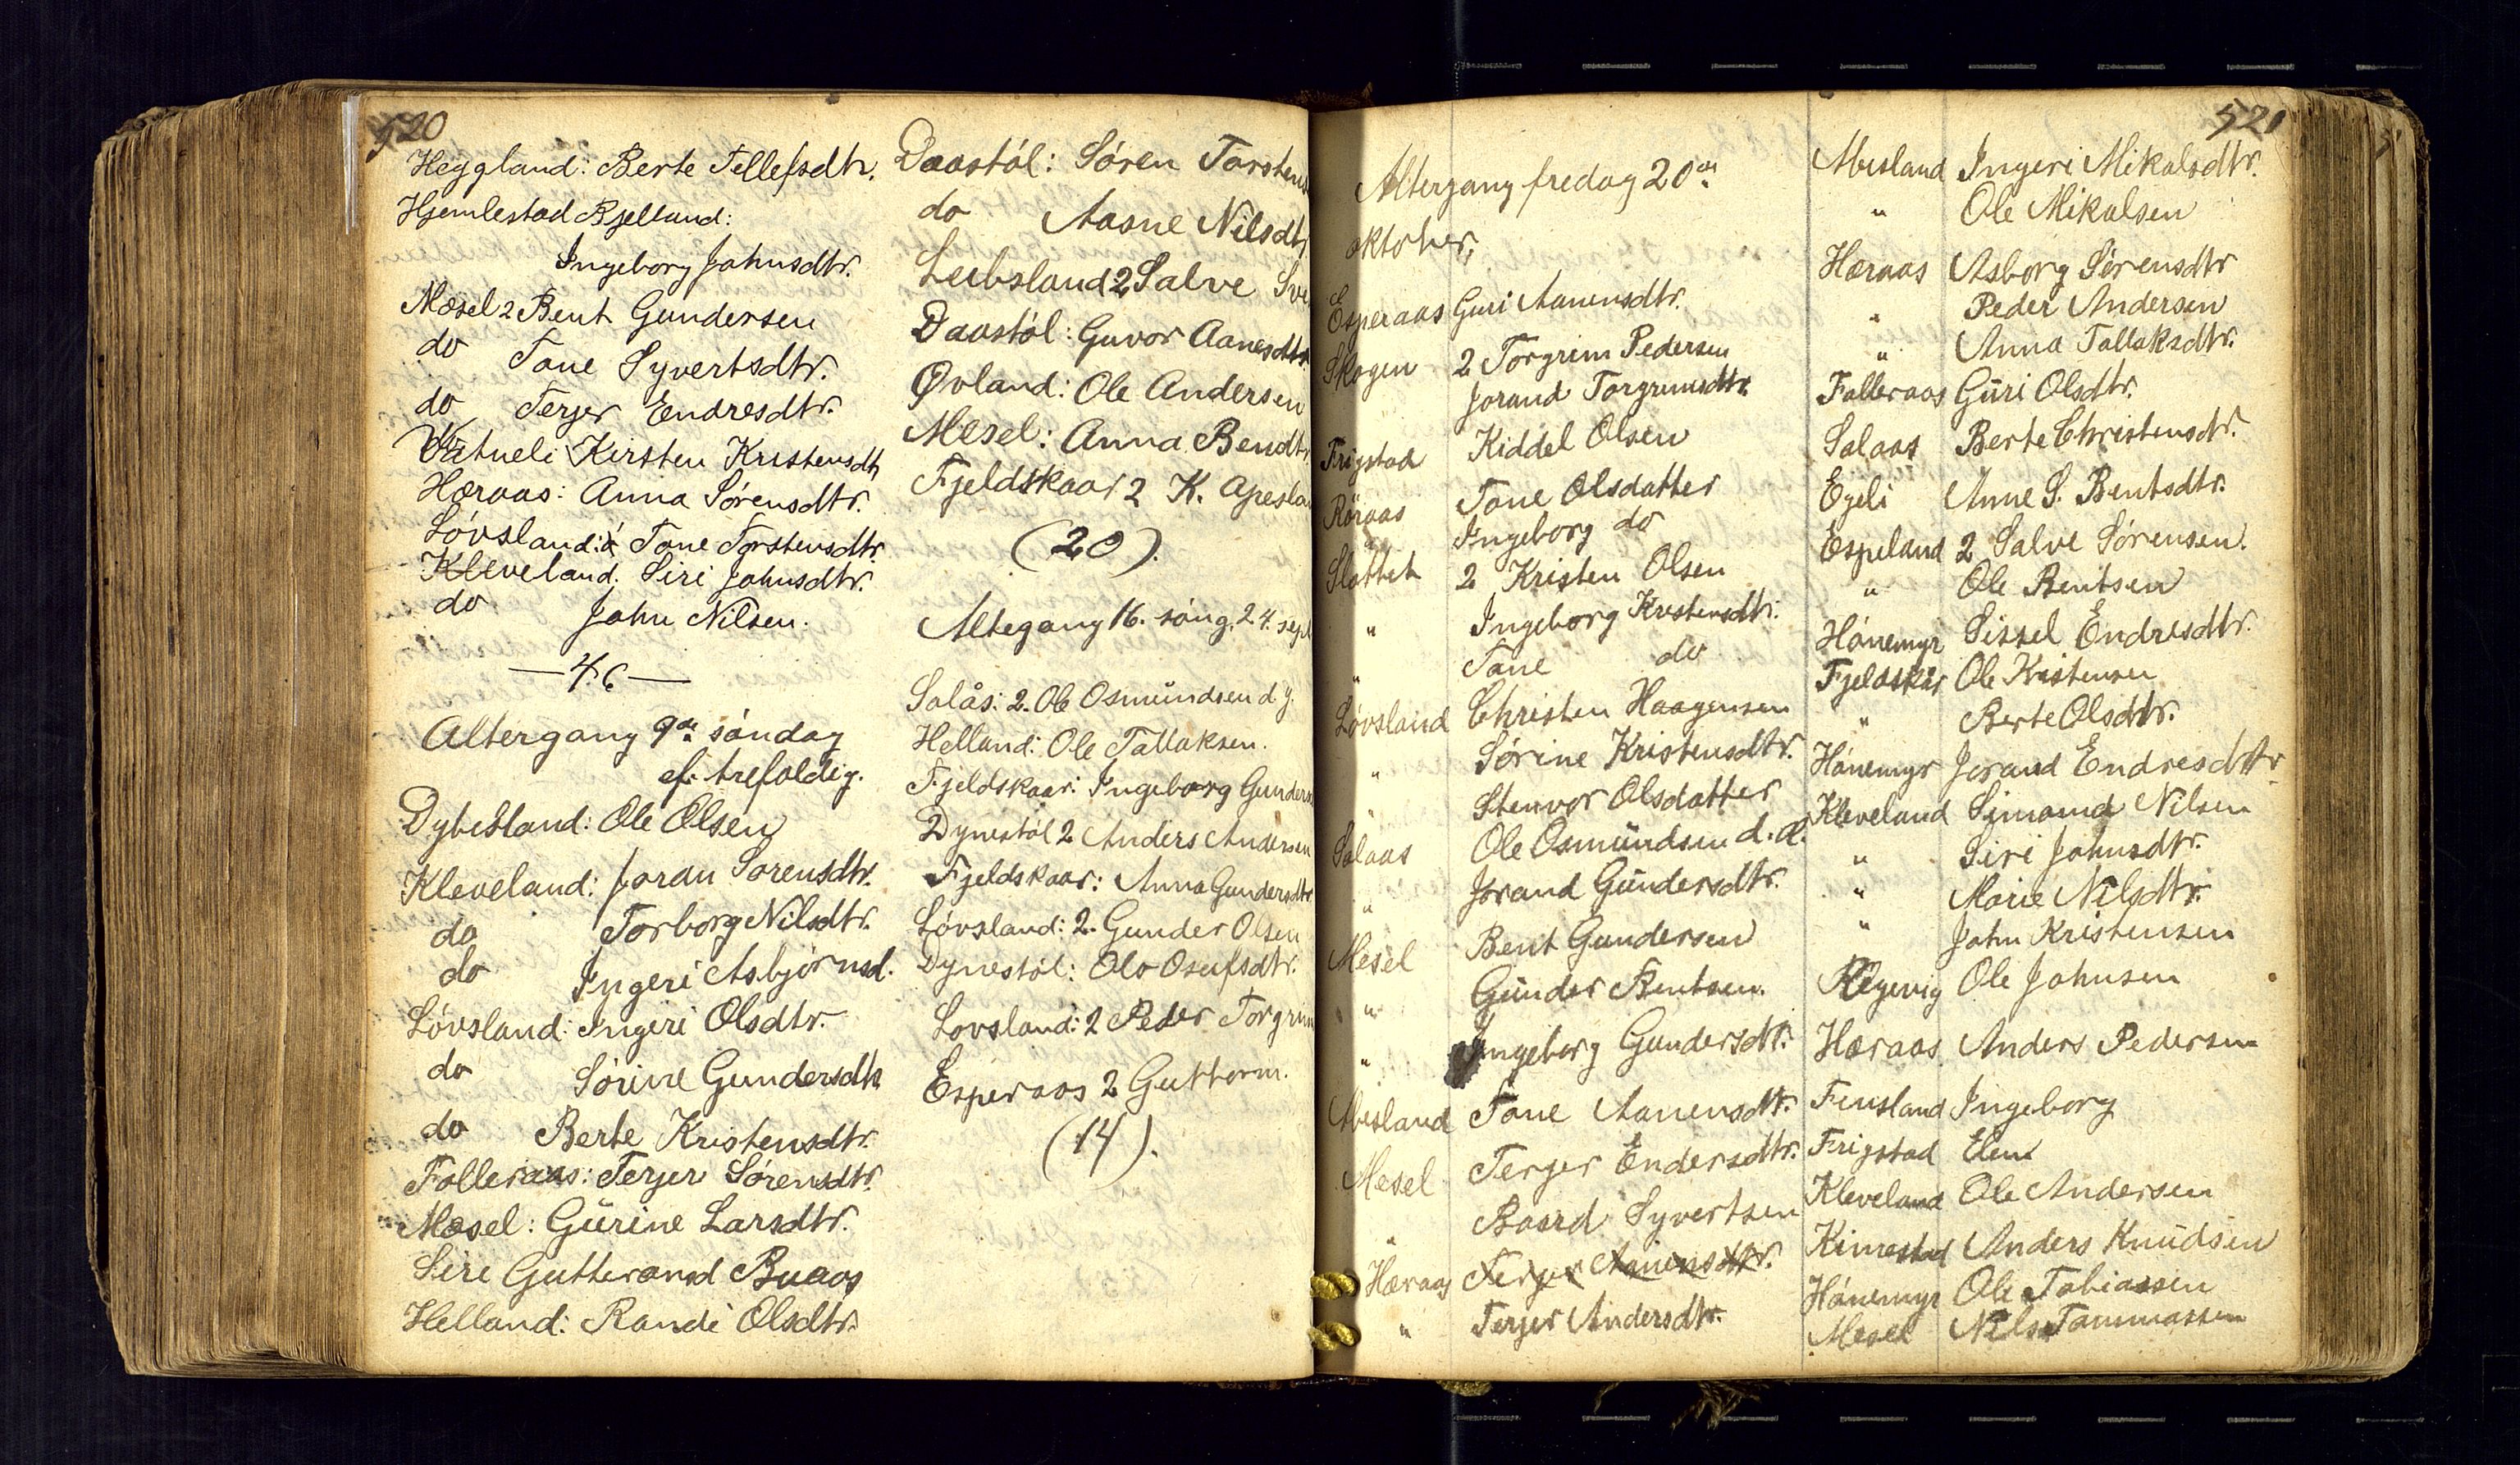 520
Heggland: Berte Tellefsdtr.
Hjemlestad Kjelland:
Ingeborg Johnsdtr.
Mæsel 2 Bent Gundersen
do Tone Syvertsdtr.
do Terjer Endresdtr.
Vatneli Kirsten Kristensdtr
Høraas: Anna Sørensdtr.
Lóvsland: Tone Torstensdtr.
Kleveland. Siri Johnsdtr.
do John Nilsen.
— 46 —
Altergang 9de søndag
ef. trefoldig.
Dybesland: Ole Olsen
Kleveland: Joran Sorensdtr.
do Torborg Nilsdtr.
do Ingeri Asbjörnsd.
Lóvsland: Ingeri Olsdtr.
do Sórine Gundersdtr
do Berte Kristensdtr.
Folleraas: Terjer Sórensdtr.
Mæsel: Gurine Larsdtr.
Siri Gutterand Buaas
Helland: Randi Olsdtr.
Daastól: Sóren Torstens
do Aasne Nilsdtr
Leibsland 2 Salve Sve
Daastól: Guvor Aanesdtr.
Øvland: Ole Andersen
Mesel: Anna Bendtr
Fjeldskaar 2 K. Apeslan
(20).
Altegang 16. sóng. 24. sept
Salås: 2. Ole Osmundsen d.y.
Helland: Ole Tallaksen.
Fjeldskaar: Ingeborg Gunders
Dynestól 2 Anders Andersen
Fjeldskaar: Anna Gundersdtr
Lóvsland: 2. Gunder Olsen
Dynestól: Olo Osufsdtr.
Lovsland: 2 Peder Torgrim
Esperaas 2 Guttorm.
(14).
521
Altergang fredag 20de
oktober,
Esperaas Guri Aanensdtr.
Skogen 2 Torgrim Pedersen
Jorand Torgrimsdtr.
Frigstad Kiddel Olsen
Röraas Tone Olsdatter
Ingeborg do
Slottet 2 Kristen Olsen
" Ingeborg Kristensdtr.
" Tone do
Lóvsland Christen Haagensen
" Sórine Kristensdtr.
" Stenvor Olsdatter
Salaas Ole Osmundsen d.æ.
" Jorand Gundersdtr.
Mesel Bent Gundersen
" Gunder Bentsen.
" Ingeborg Gundersdtr.
Abusland Tone Aanensdtr.
Mesel Terjer Endersdtr.
" Baard Syvertsen
Hæraas Terjer Aanensdtr.
" Terjer Andersdtr.
Abusland Ingeri Mikalsdtr.
" Ole Mikalsen
Hæraas Asborg Sórensdtr
" Peder Andersen
" Anna Tallaksdtr.
Folleraas Guri Olsdtr.
Salaas Berte Christensdtr.
Egeli Anne S. Bentsdtr.
Espeland 2 Salve Sórensen.
" Ole Bentsen
Hónemyr Sissel Endresdtr.
Fjeldskår Ole Kristensen
" Berte Olsdtr.
Hónemyr Jorand Endresdtr
Kleveland Simond Nilsen
" Siri Johnsdtr.
" Marie Nilsdtr.
" John Kristensen
Ole Johnsen
Hæraas Anders Pedersen
Finsland Ingeborg
Frigstad Elen
Kleveland Ole Andersen
Kimestad Anders Knudsen
Hónemyr Ole Tobiassen
Mesel Nils Tommassen